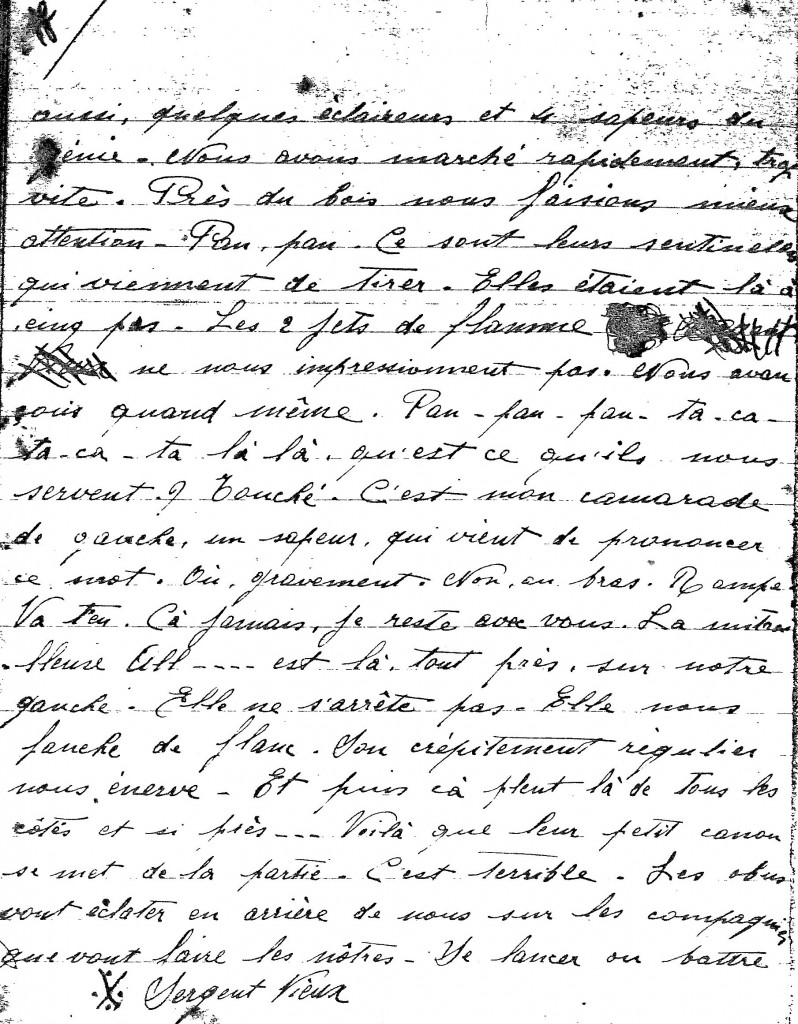 aussi, quelques éclaireurs et 4 sapeurs du
génie - Nous avons marché rapidement, trop
vite. Près du bois nous faisions mieux
attention - Pan, pan - Ce sont leurs sentinelles
qui viennent de tirer - Elles étaient là à
cinq pas - Les 2 jets de flamme
ne nous impressionnent pas. Nous avan
çons quand même. Pan - pan - pan - ta - ca -
ta - ca - ta là là, qu'est ce qu'ils nous
servent. ? Touché. C'est mon camarade
de gauche, un sapeur, qui vient de prononcer
ce mot. Où, gravement. Non, au bras. Rampe.
Va t'en. Cà jamais, je reste avec vous. La mitrai
lleuse All ---- est là, tout près, sur notre
gauche - Elle ne s'arrête pas - Elle nous
fauche de flanc. Son crépitement régulier
nous énerve - Et puis cà pleut là de tous les
côtés et si près --- Voilà que leur petit canon
se met de la partie - C'est terrible - Les obus
vont éclater en arrière de nous sur les compagnies
que vont faire les nôtres - Se lancer ou battre
Sergent Vieux